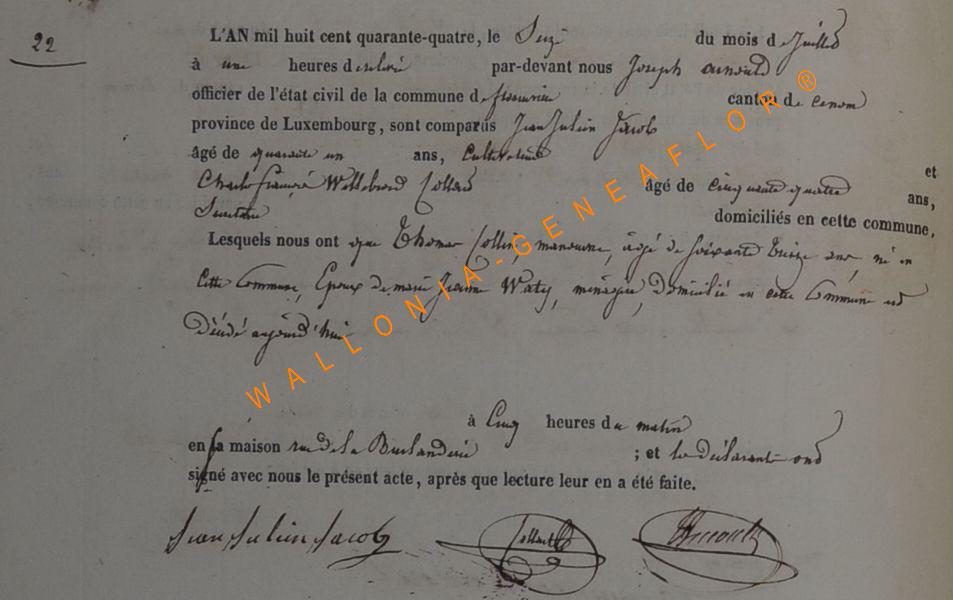 22
L'AN mil huit cent quarante-quatre, le Seize du mois de Juillet
à une heures de relevé par-devant nous Joseph arnould
officier de l'état civil de la commune de canton de
province de Luxembourg, sont comparus Jean Julien Jacob
âgé de quarante un ans, Cultivateur et
Charles françois Willebrord âgé de Cinquante quatre ans,
domiciliés en cette commune,
Lesquels nous ont que Thomas Collin, manœuvre, âgé de soixante treize ans, né en
Cette Commune, Epoux de marie Jeanne Waty, ménagère, Domicilié en cette Commune est
Décédé aujourd'hui
à Cinq heures du matin
en sa maison rue de la ; et les déclarants ont
signé avec nous le présent acte, après que lecture leur en a été faite.
Jean Julien Jacob
WALLONIA-GENEAFLOR®